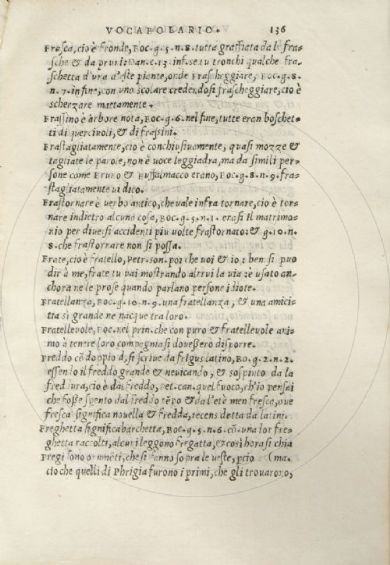 VOCABOLARIO. 136
Frasca, cioè fronde, Boc. g. 5. n. 8. tutta graffiata da le fra-
sche & da pruni: Dan. c. 13. inf. se tu tronchi qualche fra-
schetta d'una d'este piante, onde Frascheggiare, Boc. g. 8.
n. 7. in fine, con uno scolare credendosi frascheggiare, cio è
scherzare mattamente.
Frassino è arbore nota, Boc. g. 6. nel fine, tutte eran boschet-
ti di querciuoli, & di frassini.
Frastagliatamente, cio è conchiusiuamente, quasi mozze &
tagliate le parole, non è uoce leggiadra, ma da simili per-
sone come Bruno & Buffalmacco erano, Boc. g. 8. n. 9. fra-
stagliatamente ui dico.
Frastornare è uerbo antico, che uale infra tornare, cio è tor-
nare indietro alcuna cosa, Boc. g. 5. n. 1. erasi il matrimo-
nio per diuersi accidenti piu uolte frastornato: & g. 10. n.
8. che frastornare non si possa.
Frate, cio è fratello, Petr. son. poi che uoi & io: ben si puo
dir à me, frate tu vai mostrando altrui la via &è usato an-
chora ne le prose quando parlano persone idiote.
Fratellanza, Boc. g. 10. n. 9. una fratellanza, & una amicitia
si grande ne nacque tra loro.
Fratellevole, Boc. nel prin. che con puro & fratellevole ani-
mo à tenere loro compagnia si douessero disporre.
Freddo cõ doppio d, si scriue da frigus latino, Bo. g. 2. n. 2.
essendo il freddo grande & neuicando, & sospinto da la
freddura, cio è dal freddo, Pet. can. quel fuoco, ch'io pensai
che fosse spento dal freddo tẽpo & da l'età men fresca, oue
fresca significa nouella & fredda, recens detta da latini.
Freghetta significa barchetta, Boc. g. 5. n. 6. cõ una lor fre-
ghetta raccolti, alcuni leggono fregatta, & così hora si chia
Fregi sono ornamẽti, che si fanno sopra le ueste, pcio (ma.
cio che quelli di Phrigia furono i primi, che gli trouarono,